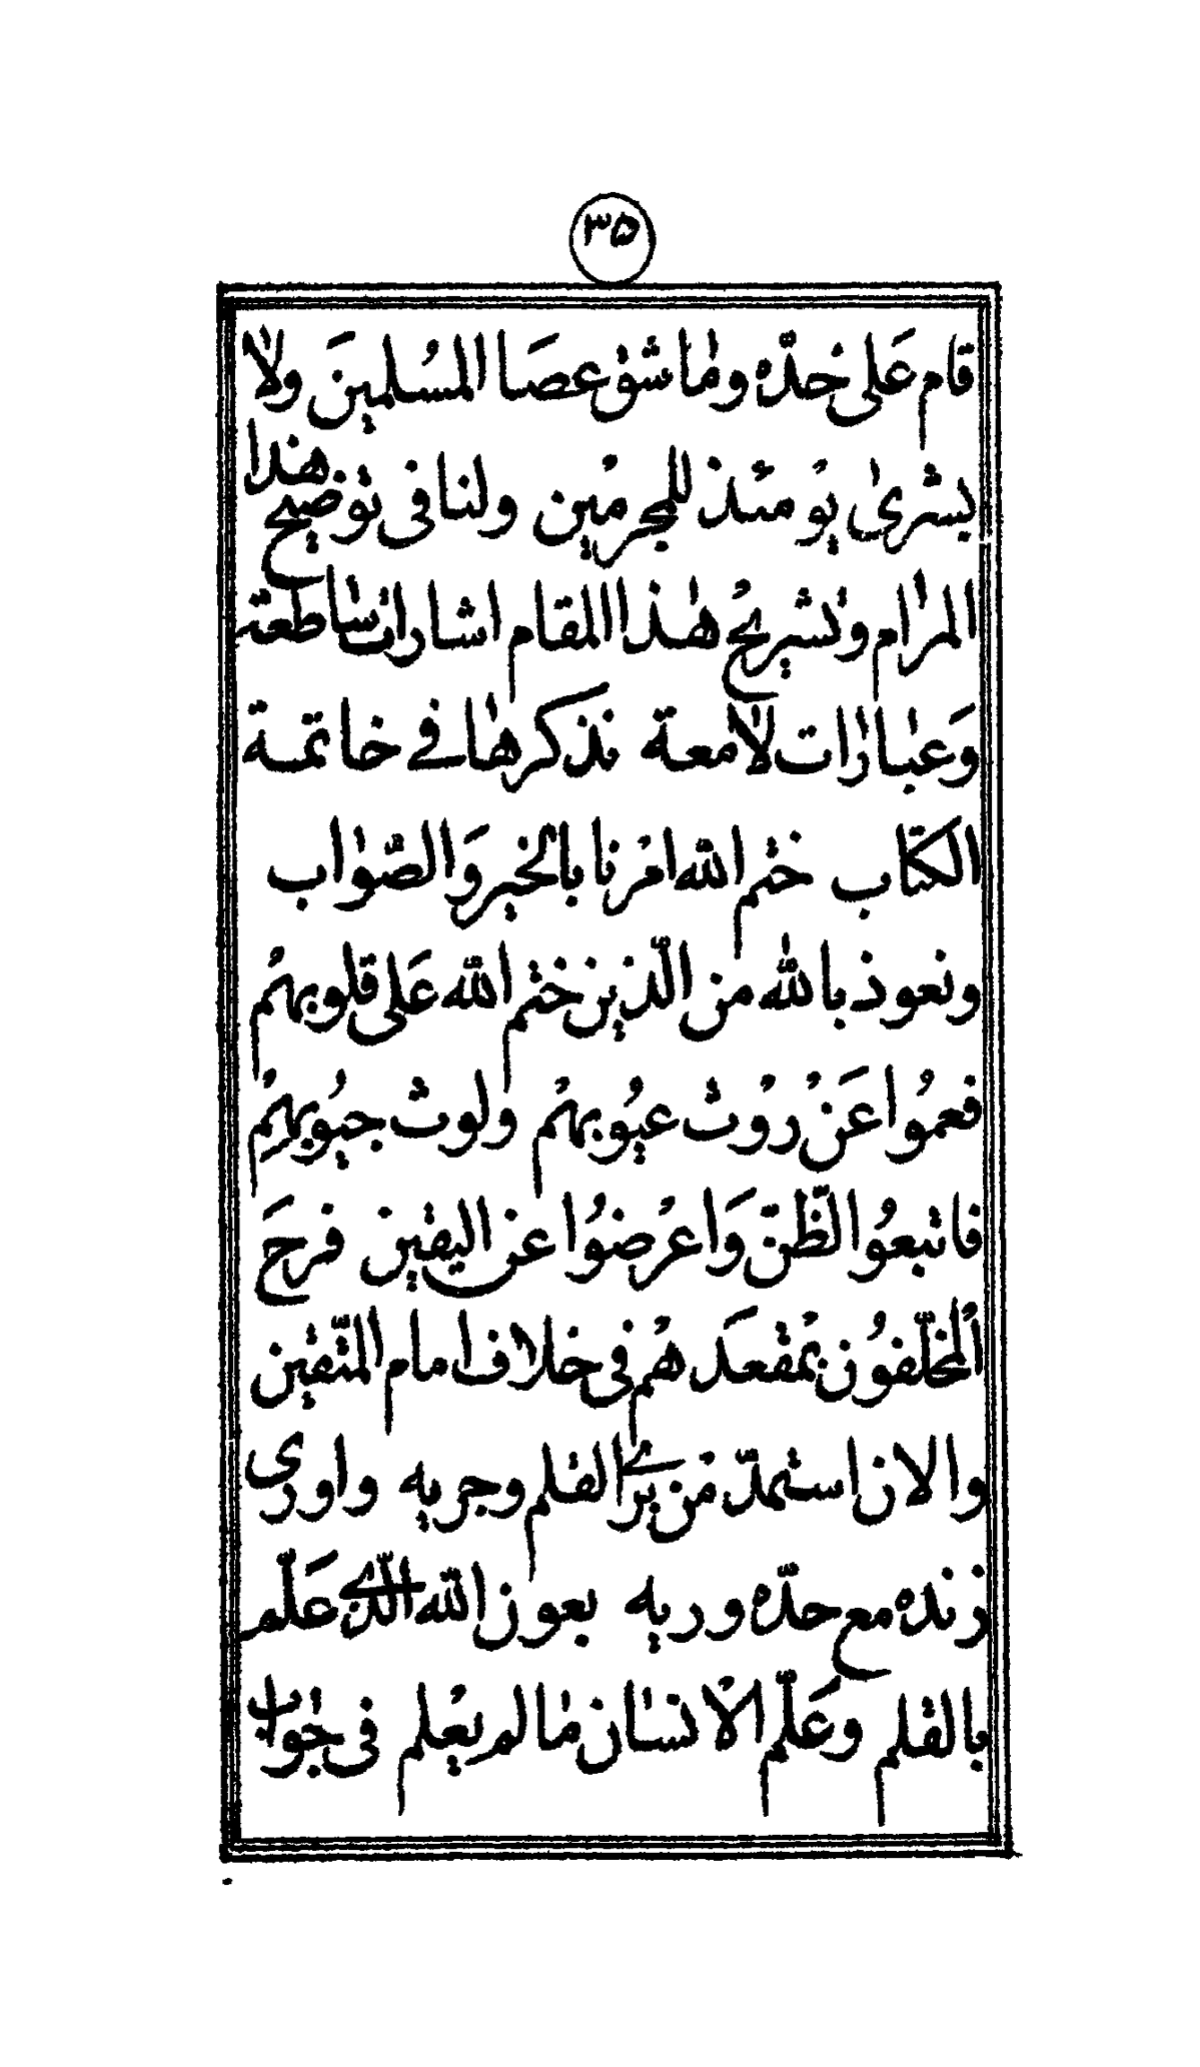 ۳۵
قام عَلی خدّه وما شق عصَا المسُلمينَ ولا
بشریٰ يوُ مئذ للمجرمُين ولنا فی توضيح هذا
المرام وتشريحُ هٰذا المقام اشارات ساطعة
وَعبارات لامعة نذكرها فے خاتمة
الكتاب ختم الله امرُنا بالخيروَ الصّواب
ونعوذ بالله من الّذين ختم الله عَلی قلوبهمُ
فعموُا عَنُ روُث عيوُبهمُ ولوث جيوُبهمُ
فاتبعوُا لظّنّ وَاعُرضوُا عن اليقين فرحَ
المُخلّفوُن بمُقعدَ همُ فی خلاف امام المتّقين
والان استمدّ منُ برے القلم وجريه واوری
زنده مع حدّه وريه بعون الله الذے عَلّم
بالقلم وعَلّم الاُنسان ما لم يعُلم فی جواب